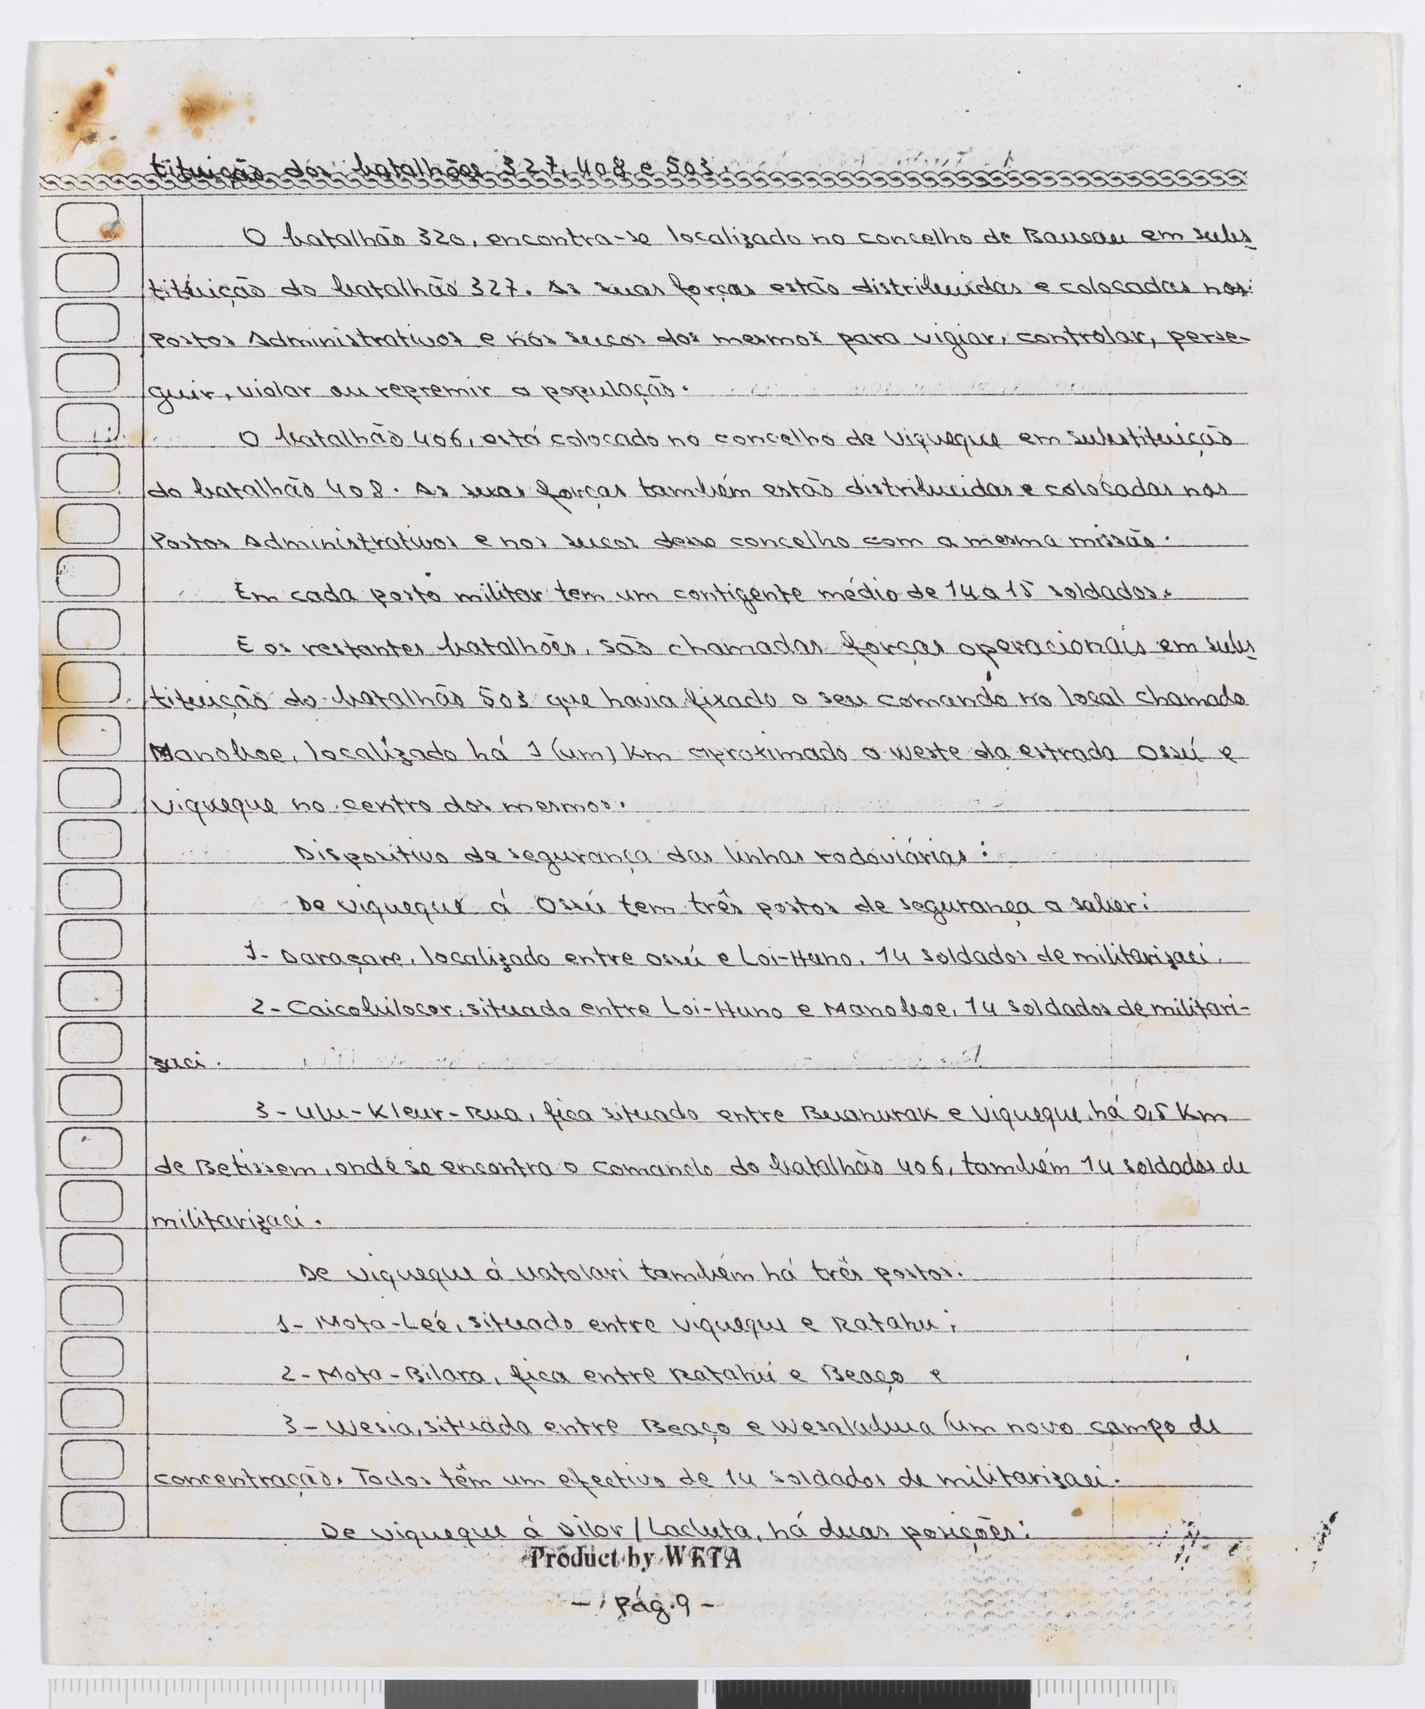 tituição dos batalhões 327, 408 e 503.
O batalhão 320, encontra-se localizado no concelho de Baucau em subs
tituição do batalhão 327. As suas forças estão distribuidas e colocadas nos
Postos Administrativos e nos sucos dos mesmos para vigiar, controlar, perse-
guir, violar ou repremir a população.
O batalhão 406, está colocado no concelho de Viqueque em substituição
do batalhão 408. As suas forças também estão distribuidas e colocadas nos
Postos Administrativos e nos sucos desse concelho com a mesma missão.
Em cada posto militar tem um contigente médio de 14 a 15 soldados.
E os restantes batalhões, são chamadas forças operacionais em subs
tituição do batalhão 503 que havia fixado o seu comando no local chamado
Manoboe, localizado há 1 (um) Km aproximado a weste da estrada Ossú e
Viqueque no centro dos mesmos.
Dispositivo de segurança das linhas rodoviárias:
De Viqueque á Ossú tem três postos de segurança a saber:
1- Daraçare, localizado entre Ossú e Loi-Huno. 14 soldados de militarizaci.
2- Caicobilocor, situado entre Loi-Huno e Manoboe, 14 soldados de militari-
zaci.
3- Ulu-Kleur-Rua, fica situado entre Buanurak e Viqueque há 0,5 Km
de Betissem, onde se encontra o comando do batalhão 406, também 14 soldados de
militarizaci.
De Viqueque á Uatolari também há três postos.
1- Mota-Leé, situado entre Viqueque e Ratahu;
2- Mota-Bilara, fica entre Ratahú e Beaço e
3- Wesia, situada entre Beaço e (um novo campo de
concentração. Todos têm um efectivo de 14 soldados de militarizaci.
De Viqueque á Dilor/Lacluta, há duas posições:
Product by WETA
- Pág.9 -